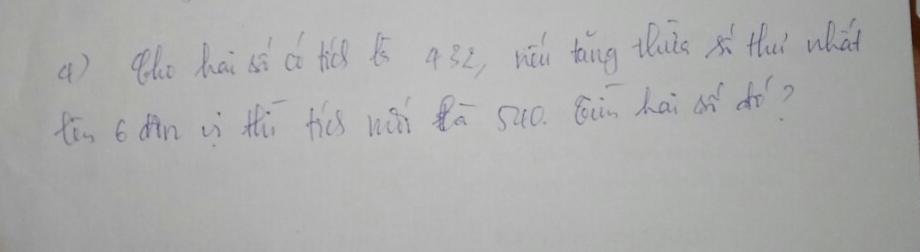 a) Cho hai số có tích là 432, nếu tăng thừa số thứ nhất
lên 6 đơn vị thì tích mới là 540. Tìm hai số đó?